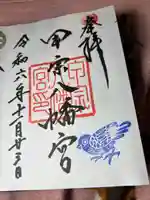 奉拝
甲宗八幡宮
令和六年十一月廿三日